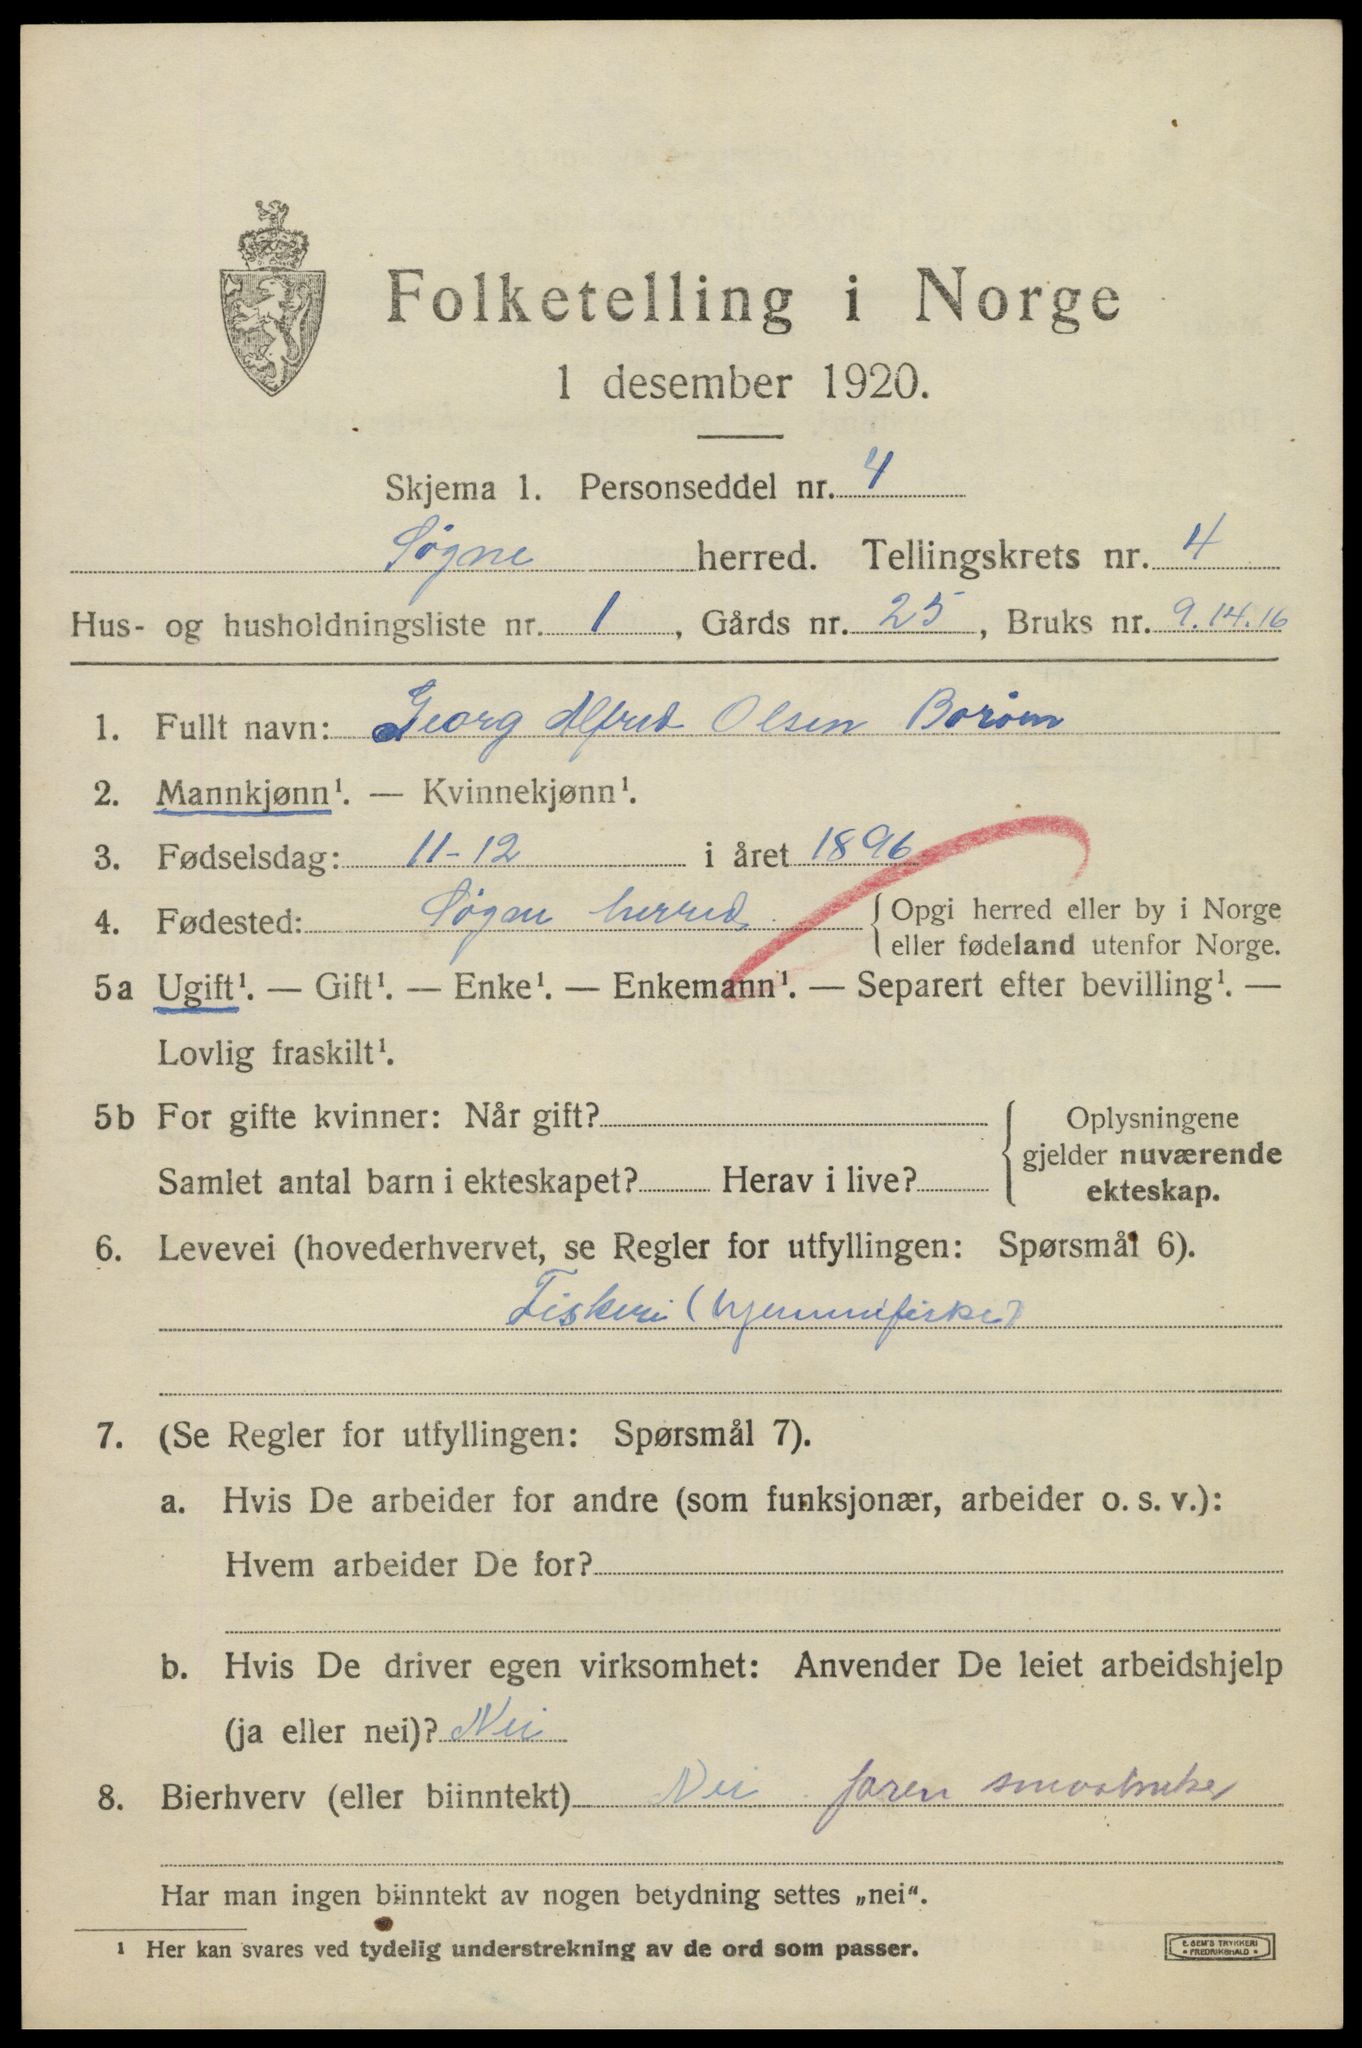 Folketelling i Norge
1 desember 1920.
Skjema 1. Personseddel nr. 4
Søgne herred. Tellingskrets nr. 4
Hus- og husholdningsliste nr. 1, Gårds nr. 25, Bruks nr. 9.14.16
1. Fullt navn: Georg Alfred Olsen Borøen
2. Mannkjønn¹. — Kvinnekjønn¹.
3. Fødselsdag: 11-12 i året 1896
4. Fødested: Søgne herred. { Opgi herred eller by i Norge
eller fødeland utenfor Norge.
5a Ugift¹. — Gift¹. — Enke¹. — Enkemann¹. — Separert efter bevilling¹. —
Lovlig fraskilt¹.
5b For gifte kvinner: Når gift? { Oplysningene
gjelder nuværende
Samlet antal barn i ekteskapet? Herav i live? ekteskap.
6. Levevei (hovederhvervet, se Regler for utfyllingen: Spørsmål 6).
Fiskeri (hjemmefiske)
7. (Se Regler for utfyllingen: Spørsmål 7).
a. Hvis De arbeider for andre (som funksjonær, arbeider o. s. v.):
Hvem arbeider De for?
b. Hvis De driver egen virksomhet: Anvender De leiet arbeidshjelp
(ja eller nei)? Nei
8. Bierhverv (eller biinntekt) Nei faren småbruker
Har man ingen biinntekt av nogen betydning settes „nei“.
¹ Her kan svares ved tydelig understrekning av de ord som passer.
E. SEM'S TRYKKERI
* FREDRIKSHALD *